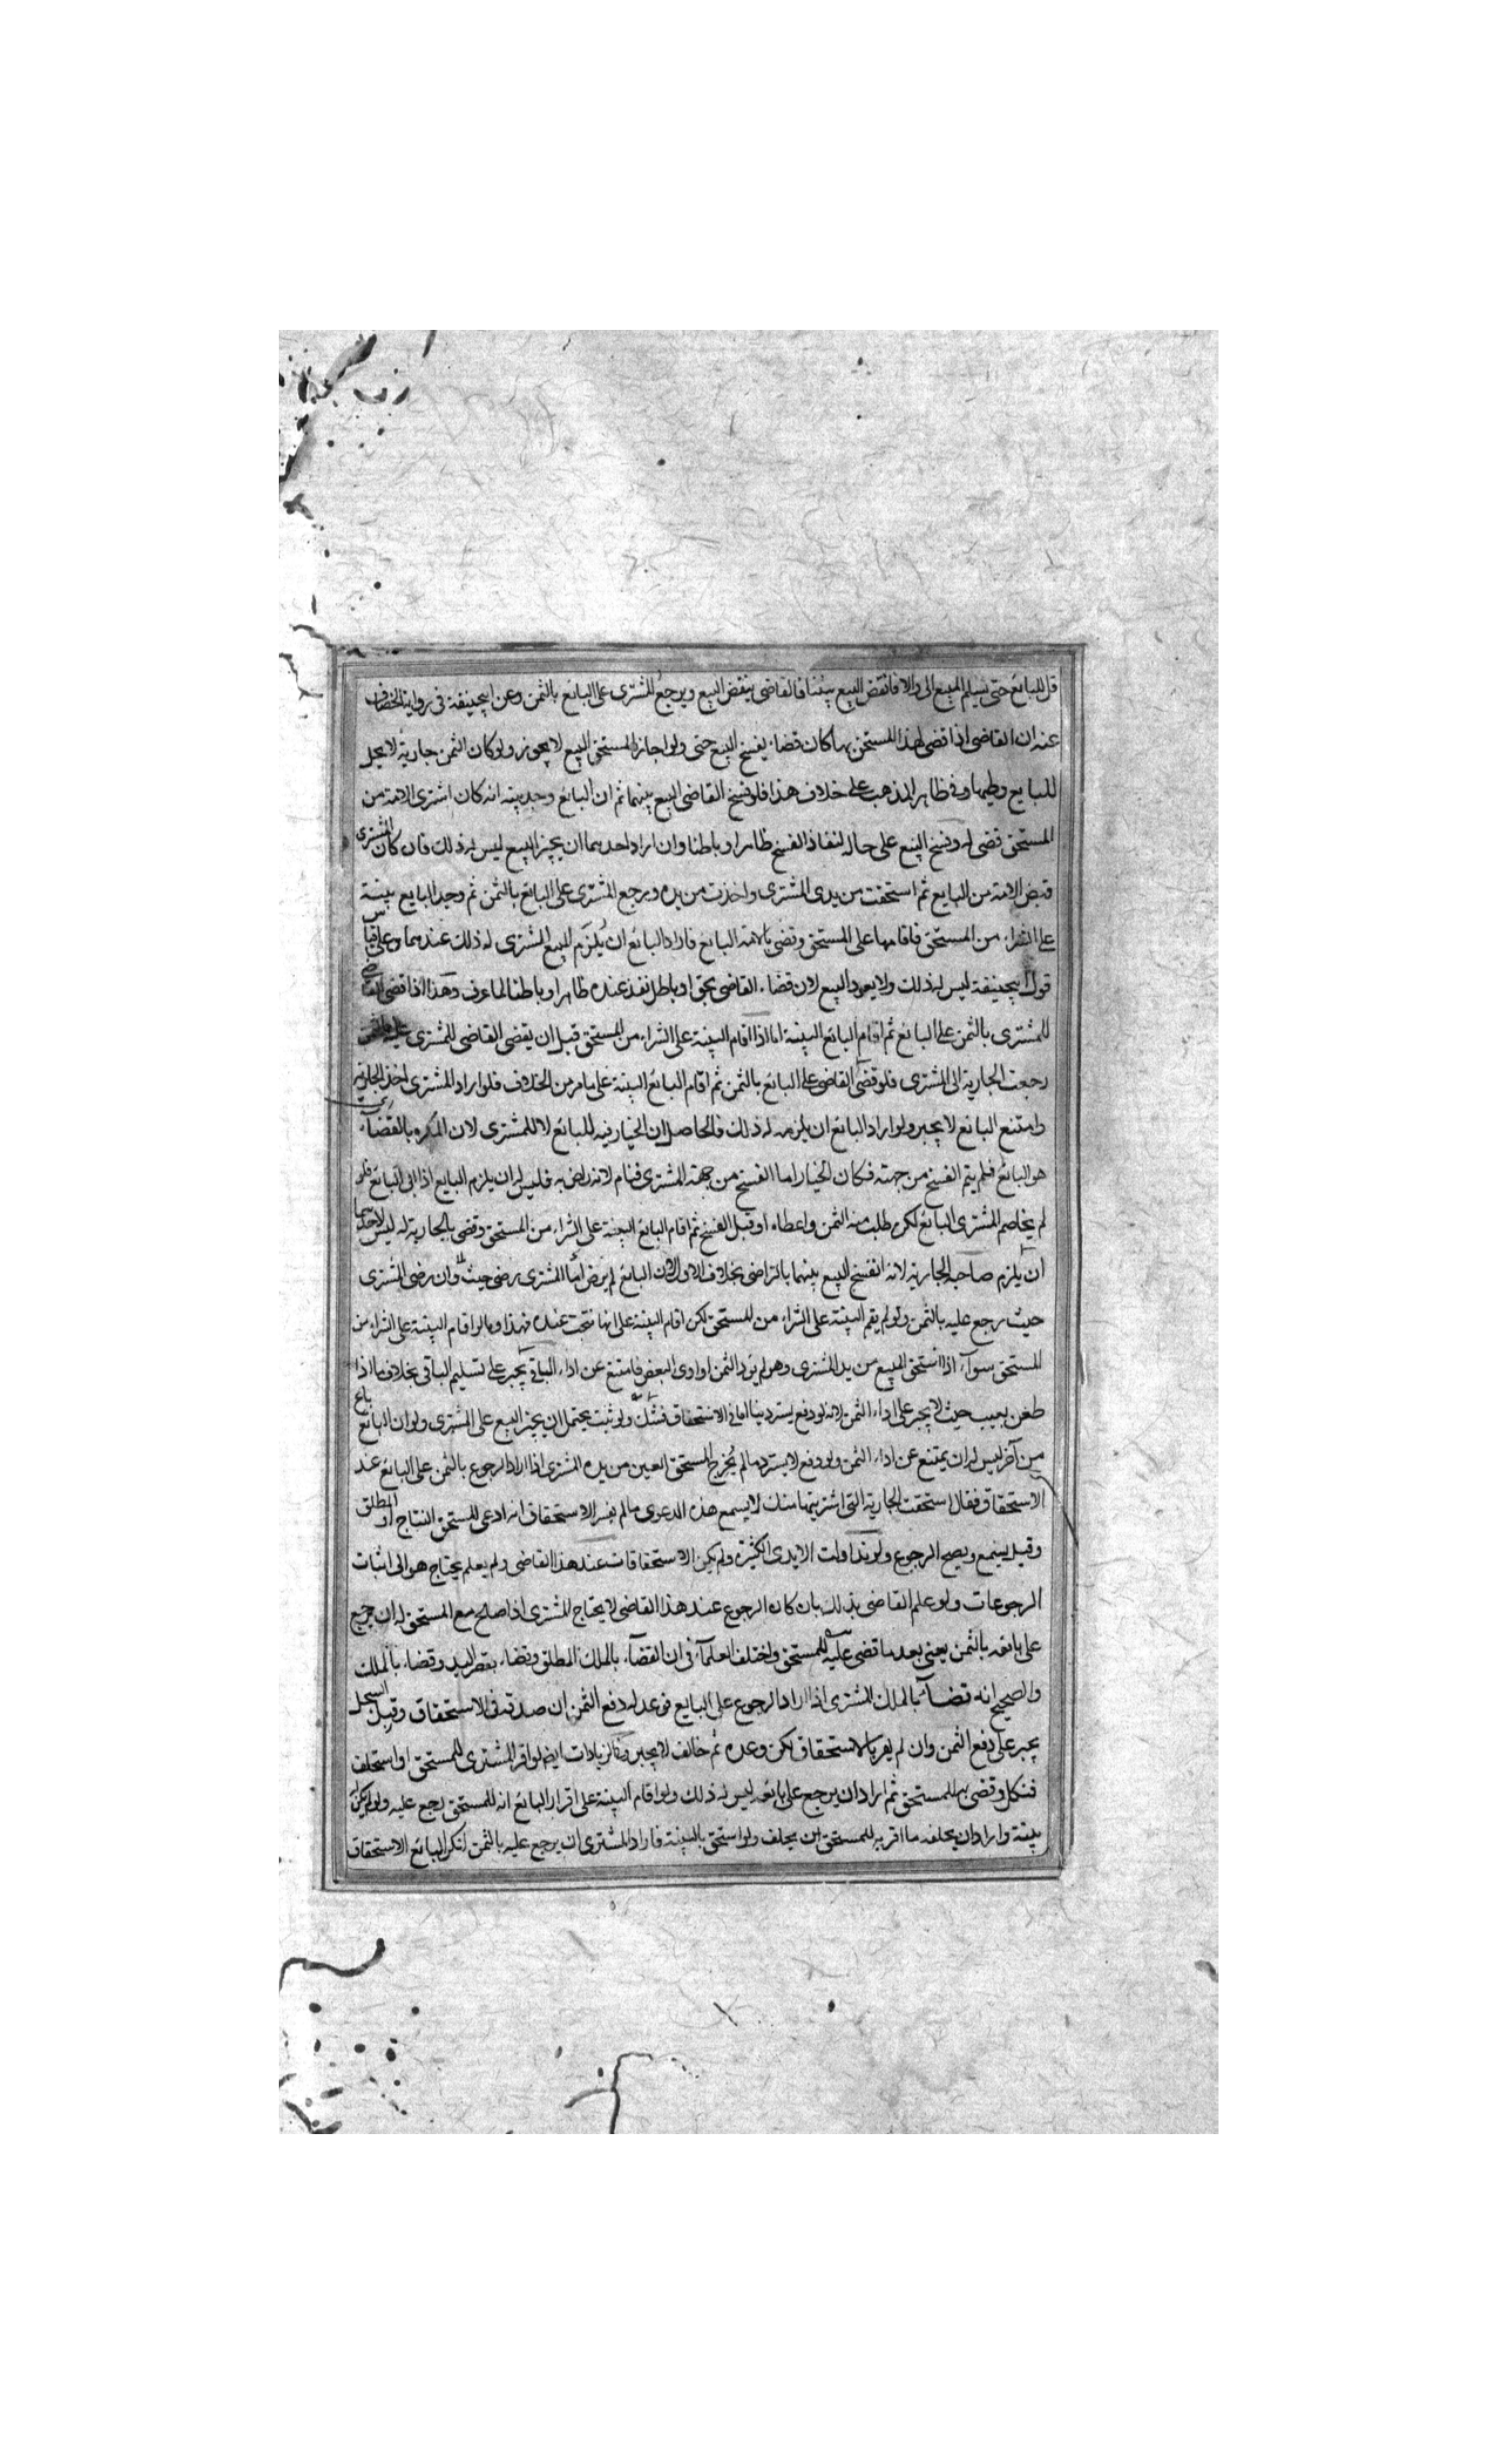 قل للبائع حتى يسلم المبيع الى والا فانقض البيع بيننا فالقاضى ينقض البيع ويرجع المشترى على البائع بالثمن وعن ابيحنيفة فى رواية الخصاف
عنه ان القاضى اذا قضى لهذا المستحق بها كان قضاء يفسخ البيع حتى ولو اجاز المستحق البيع لا يجوز ولو كان الثمن جارية لا يحل
للبايع وطيها وفى ظاهر المذهب على خلاف هذا فلو فسخ القاضى البيع بينهما ثم ان البائع وجد بينة انه كان اشترى الامة من
المستحق قضى له وفسخ البيع على حاله لنفاذ الفسخ ظاهرا وباطنا وان اراد احدهما ان يجيز البيع ليس له ذلك فان كان المشترى
قبض الامة من البايع ثم استحقت من يدى المشترى واخذت من يده ورجع المشترى على البائع بالثمن ثم وجد البايع بينة
على الشراء من المستحق فاقامها على المستحق وقضى بالامة البائع فاراد البائع ان يلزم البيع المشترى له ذلك عندهما وعلى قياس
قول ابيحنيفة ليس له ذلك ولا يعود البيع لان قضاء القاضى بحق او باطل نفذ عنده ظاهرا وباطنا لما عرف وهذا اذا قضى القاضى
للمشترى بالثمن على البائع ثم اقام البائع البينة اما اذا اقام البينة على الشراء من المستحق قبل ان يقضى القاضى للمشترى
رجعت الجارية الى المشترى فلو قضى القاضى على البائع بالثمن ثم اقام البائع البينة على ما مر من الخلاف فلو اراد المشترى اخذ الجارية
وامتنع البائع لا يجبر ولو اراد البائع ان يلزمه له ذلك فالحاصل ان الخيار فيه للبائع لا للمشترى لان المكره بالقضاء
هو البائع فلم يتم الفسخ من جهته فكان الخيار اما الفسخ من جهة المشترى فتام لانه راض به فليس له ان يلزم البايع اذا ابى البائع فلو
لم يخاصم المشترى البائع لكن طلب منه الثمن واعطاه او قبل الفسخ ثم اقام البائع البينة على الشراء من المستحق وقضى بالجارية له ليس لاحدهما
ان يلزم صاحبه الجارية لانه انفسخ البيع بينهما بالتراضى بخلاف الاول لان البائع لم يرض اما المشترى رضى حيث وان رضى المشترى
حيث رجع عليه بالثمن ولو لم يقم البينة على الشراء من المستحق لكن اقام البينة على انها نتجت عنده فهذا وما لو اقام البينة على الشراء من
المستحق سواء اذا استحق المبيع من يد المشترى وهو لم يؤد الثمن او ادى البعض فامتنع عن اداء الباقى يجبر على تسليم الباقى بخلاف ما اذا
طعن بعيب حيث لا يجبر على اداء الثمن لانه لو دفع يسترد بيننا اما فى الاستحقاق فشك ولو ثبت يحتمل ان يجيز البيع على المشترى ولو ان البائع باع
من آخر ليس له ان يمتنع عن اداء الثمن ولو دفع لا يسترد ما لم يخرج المستحق العين من يده المشترى اذا اراد الرجوع بالثمن على البائع عند
الاستحقاق فقال استحقت الجارية التى اشتريتها منك لا يسمع هذه الدعوى ما لم يفسر الاستحقاق انه ادعى المستحق النتاج او المطلق
وقيل يسمع ويصح الرجوع ولو تداولت الايدى الكثيرة ولم يكن الاستحقاقات عند هذا القاضى ولم يعلم يحتاج هو الى اثبات
الرجوعات ولو علم القاضى بذلك بان كان الرجوع عند هذا القاضى لا يحتاج المشترى اذا صالح مع المستحق له ان يرجع
على بائعه بالثمن يعنى بعد ما قضى عليه للمستحق واختلف العلماء فى ان القضاء بالملك المطلق وقضاء بقصر اليد وقضاء بالملك
والصحيح انه قضاء بالملك المشترى اذا اراد الرجوع على البايع فوعد له دفع الثمن ان صدقه فى الاستحقاق وقبل السجل
يجبر على دفع الثمن وان لم يقر بالاستحقاق لكن وعده ثم خالف لا يجبر وفى الزيادات ايضا لو اقر المشترى للمستحق او استحلف
فنكل وقضى به للمستحق ثم اراد ان يرجع على بائعه ليس له ذلك ولو اقام البينة على اقرار البائع انه للمستحق رجع عليه ولو لم يكن له
بينة واراد ان يحلفه ما اقر به للمستحق ان يحلف ولو استحق بالبينة فاراد المشترى ان يرجع عليه بالثمن انكر البائع الاستحقاق